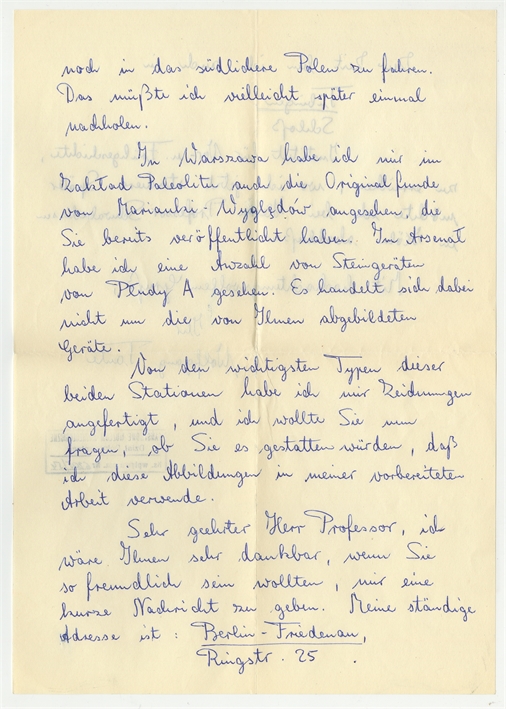 noch in das südlichere Polen zu fahren.
Das müßte ich vielleicht später einmal
nachholen.
In Warszawa habe ich mir im
Zakład Paleolitu auch die Originalfunde
von Marianki-Wyględów angesehen, die
Sie bereits veröffentlicht haben. Im Arsenał
habe ich eine Anzahl von Steingeräten
von Płudy A gesehen. Es handelt sich dabei
nicht um die von Ihnen abgebildeten
Geräte.
Von den wichtigsten Typen dieser
beiden Stationen habe ich mir Zeichnungen
angefertigt, und ich wollte Sie nun
fragen, ob Sie es gestatten würden, daß
ich diese Abbildungen in meiner vorbereiteten
Arbeit verwende.
Sehr geehrter Herr Professor, ich
wäre Ihnen sehr dankbar, wenn Sie
so freundlich sein wollten, mir eine
kurze Nachricht zu geben. Meine ständige
Adresse ist: Berlin-Friedenau,
Ringstr. 25.